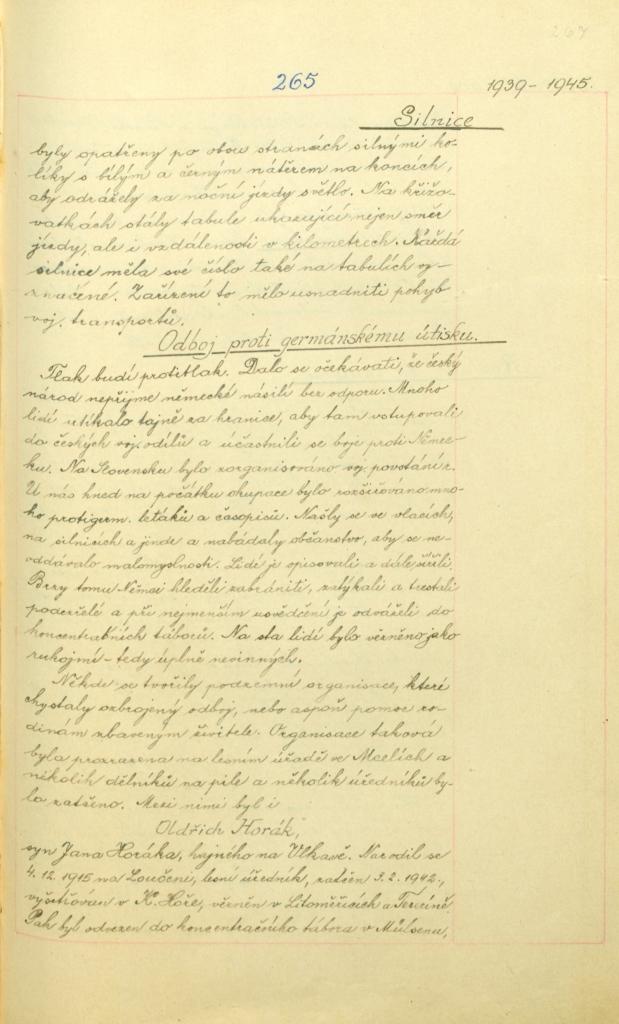 267
265
1939 - 1945.
Silnice
byly opatřeny po obou stranách silnými ko-
líky s bílým a černým nátěrem na koncích,
aby odrážely za noční jízdy světlo. Na křižo-
vatkách stály tabule ukazující nejen směr
jízdy, ale i vzdálenosti v kilometrech. Každá
silnice měla své číslo také na tabulích vy-
značené. Zařízení to mělo usnadniti pohyb
voj. transportů.
Odboj proti germánskému útisku.
Tlak budí protitlak. Dalo se očekávati, že český
národ nepřijme německé násilí bez odporu. Mnoho
lidí utíkalo tajně za hranice, aby tam vstupovali
do českých voj. odílů a účastnili se boje proti Němec-
ku. Na Slovensku bylo zorganisováno voj. povstání.
U nás hned na počátku okupace bylo rozšiřováno mno-
ho protigerm. letáků a časopisů. Našly se ve vlacích,
na silnicích a jinde a nabádaly občanstvo, aby se ne-
oddávalo malomyslnosti. Lidé je opisovali a dále šířili.
Brzy tomu Němci hleděli zabrániti, zatýkali a trestali
podezřelé a při nejmenším usvědčení je odváželi do
koncentračních táborů. Na sta lidí bylo vězněno jako
rukojmí - tedy úplně nevinných.
Někde se tvořily podzemní organisace, které
chystaly ozbrojený odboj, nebo aspoň pomoc ro-
dinám zbaveným živitele. Organisace taková
byla prozrazena na lesním úřadě ve Mcelích a
několik dělníků na pile a několik úředníků by-
lo zatčeno. Mezi nimi byl i
Oldřich Horák,
syn Jana Horáka, hajného na Vlkavě. Narodil se
4. 12. 1915 na Loučeni, lesní úředník, zatčen 3. 2. 1942.,
vyšetřován v K. Hoře, vězněn v Litoměřicích a Terezíně
Pak byl odvezen do koncentračního tábora v Mülsenu,